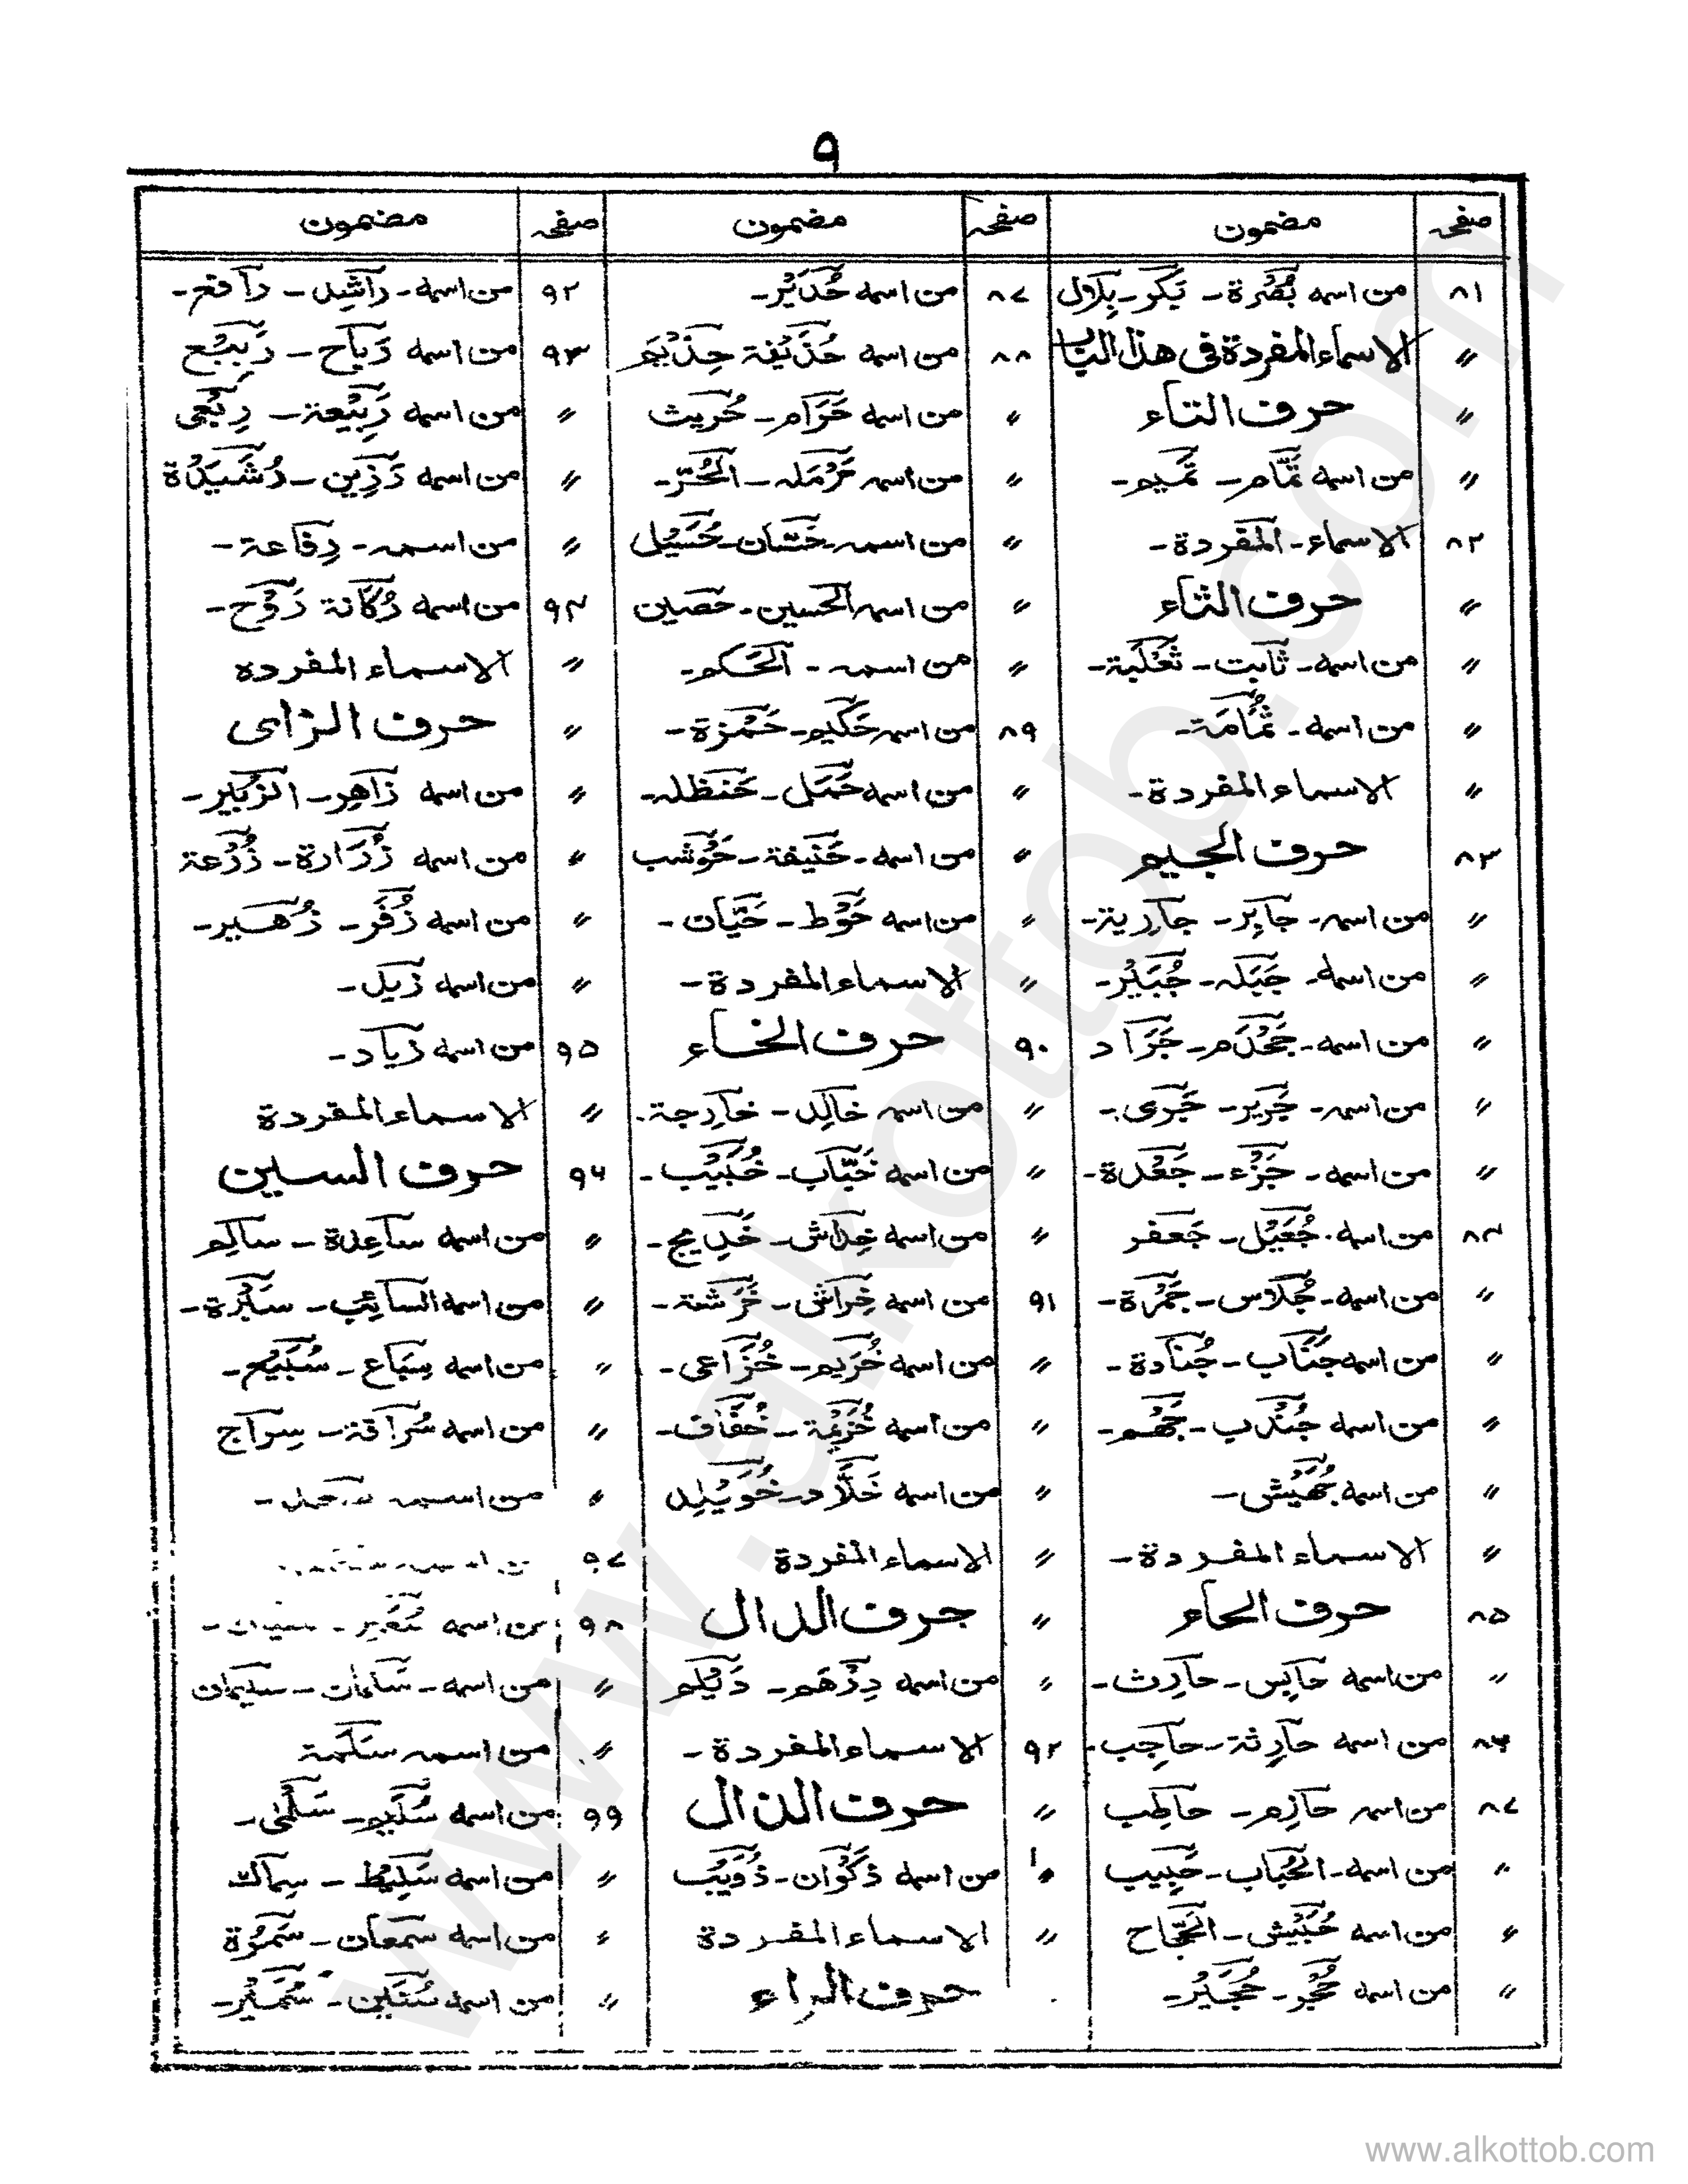 ٩
صفحہ مضمون
٨١ من اسمه بُصْرة - بَكر - بِلال
〃 الاسماء المفردة فى هذا الباب
〃 حرف التاء
〃 من اسمه تمَّام - تَمیم -
٨٢ الاسماء - المفردة -
〃 حرف الثاء
〃 من اسمه - ثابت - ثعلبة -
〃 من اسمه - ثُمامة -
〃 الاسماء المفردة -
٨٣ حرف الجيم
〃 من اسمہ - جابِر - جارِية -
〃 من اسمه - جَبَلہ - جُبَيْر -
〃 من اسمه - جَحْدَم - جَرَاد
〃 من اسمہ - جَرير - جَرى -
〃 من اسمه - جَزْء - جَعْدة -
٨٤ من اسمه - جُعَيْل - جَعفر
〃 من اسمه - جُلاس - جَمْرة -
〃 من اسمه جَنَاب - جُنادة -
〃 من اسمه جُنْدب - جَهْم -
〃 من اسمه جُهَيْش -
〃 الاسماء المفردة -
٨٥ حرف الحاء
〃 من اسمه حابِس - حارِث -
٨٦ من اسمه حارِثة - حاجِب -
٨٧ من اسمہ حازِم - حاطِب
〃 من اسمه - الحُباب - حَبِيب
〃 من اسمه حُبَيْش - الحَجّاج
〃 من اسمه حُجْر - حُجَيْر -
صفحہ مضمون
٨٧ من اسمه حُدَيْر -
٨٨ من اسمه حُذَيْفة حِذْيَم
〃 من اسمه حَرَام - حُرَيث
〃 من اسمہ حَرْمَلہ - الحُرّ -
〃 من اسمہ - حَسّان - حُسَيْل
〃 من اسمہ الحسين - حصين
〃 من اسمہ - الحَكم -
٨٩ من اسمہ حَكيم - حَمْزة -
〃 من اسمه حَمَل - حَنظلہ -
〃 من اسمه - حَنِيفة - حَوْشب
〃 من اسمه حَوْط - حَيّان -
〃 الاسماء المفردة -
٩٠ حرف الخاء
〃 من اسمہ خالِد - خارِجة -
〃 من اسمه خَبّاب - خُبَيْب -
〃 من اسمه خِداش - خَدِيج -
٩١ من اسمه خِراش - خَرَشة -
〃 من اسمه خُرَيم - خُزَاعى -
〃 من اسمه خُزَيْمة - خُفاف -
〃 من اسمه خَلّاد - خُوَيْلِد
〃 الاسماء المفردة
〃 حرف الدال
〃 من اسمه دِرْهَم - دَيْلَم
٩٢ الاسماء المفردة -
〃 حرف الذال
〃 من اسمه ذَكْوان - ذُوَيْب
〃 الاسماء المفردة
حرف الراء
صفحہ مضمون
٩٢ من اسمه - راشِد - رافع -
٩٣ من اسمه رَباح - رَبيْع
〃 من اسمه رَبِيْعة - رِبْعى
〃 من اسمه رَزِين - رُشَيْدة
〃 من اسمہ - رِفاعة -
٩٤ من اسمه رُكانة رَوْح -
〃 الاسماء المفرده
〃 حرف الزاى
〃 من اسمه زاهِر - الزبَير -
〃 من اسمه زُرَارة - زُرْعة
〃 من اسمه زُفَر - زُهَير -
〃 من اسمه زيد -
٩٥ من اسمه زياد -
〃 الاسماء المفردة
٩٦ حرف السين
〃 من اسمه ساعِدة - سالِم
〃 من اسمه السائِب - سَبْرة -
〃 من اسمه سِباع - سُبَيْع -
〃 من اسمه سُراقة - سِراج
〃 من اسمہ
٩٧
٩٨ من اسمه
〃 من اسمه - سَلمان - سليمان
〃 من اسمہ سَلَمة
٩٩ من اسمه سُلَيم - سَلْمٰى -
〃 من اسمه سَلِيْط - سِماك
〃 من اسمه سَمعان - سَمُرة
〃 من اسمه سُنَين - سُمَيْر -
www.alkottob.com
www.alkottob.com